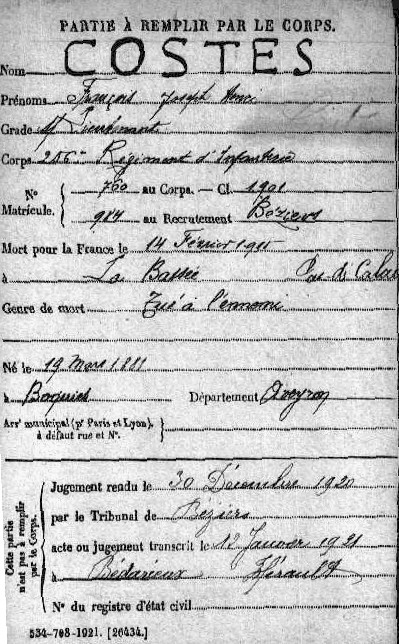 PARTIE À REMPLIR PAR LE CORPS.
Nom COSTES
Prénoms François Joseph Henri
Grade S/ Lieutenant
Corps 256e Régiment d'Infanterie
N° Matricule. { 760 au Corps. — Cl. 1901
984 au Recrutement Béziers
Mort pour la France le 14 Février 1915
à La Bassée Pas de Calais
Genre de mort Tué à l'ennemi
Né le 19 Mars 1881
à Département Aveyron
Arrt municipal (pr Paris et Lyon), à défaut rue et N°. }
Cette partie n'est pas à remplir par le Corps. {
Jugement rendu le 30 Décembre 1920
par le Tribunal de Béziers
acte ou jugement transcrit le 12 Janvier 1921
à Bédarieux Hérault
N° du registre d'état civil
534-708-1921. [26434.]